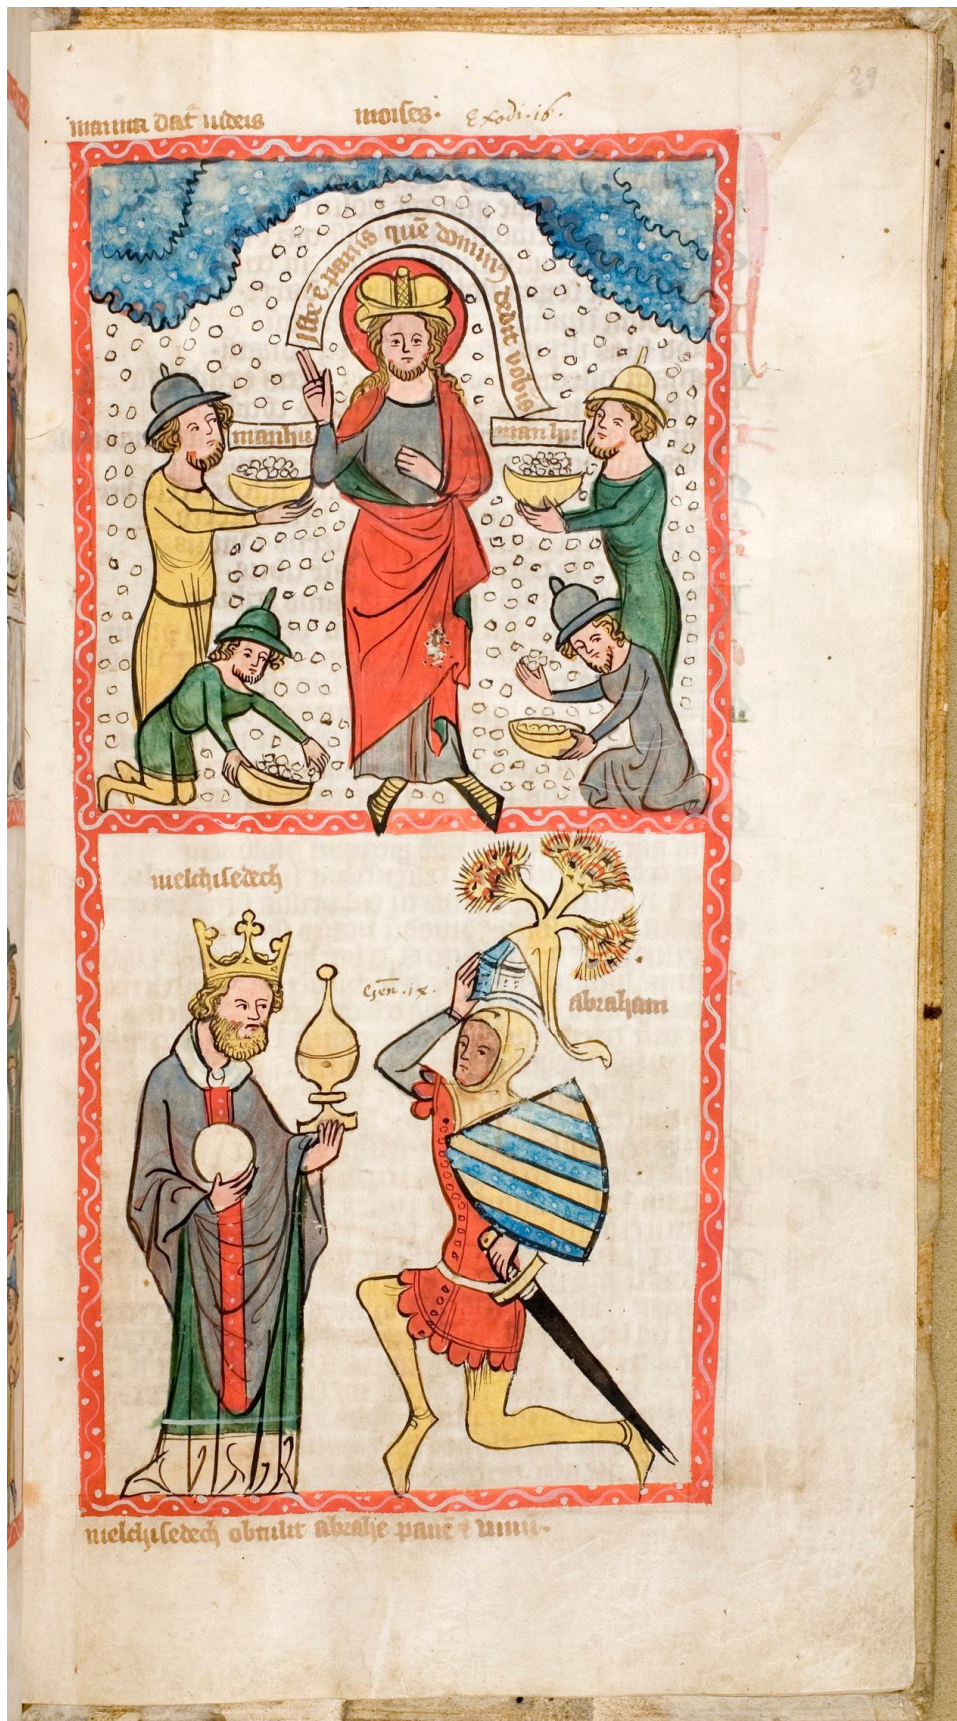 29
manna dat iudeis moises. Exodi .16.
iste ē panis quē dominꝰ dedit vobis
manhu
manhu
melchisedech
Gen̄ .ix.
abraham
melchisedech obtulit abrahe panē ⁊ vinū.